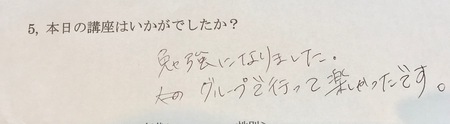 5, 本日の講座はいかがでしたか？
勉強になりました.
グループで行って楽しかったです。